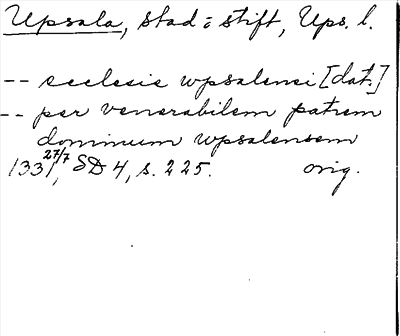 Upsala, stad o stift, Ups. l.
-- ecclesie wpsalensi [dat.]
-- per venerabilem patrem
dominum wpsalensem
1331 27/7, SD 4, s. 225. orig.